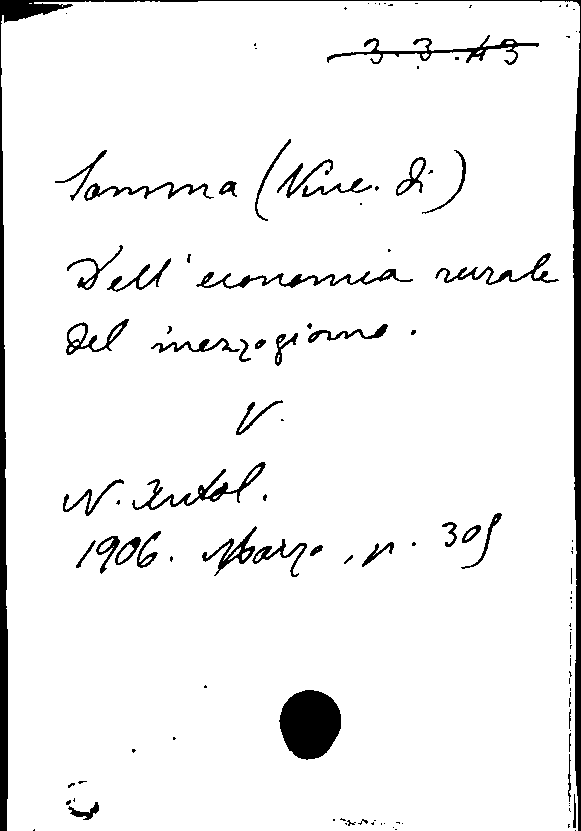 3.3.43
Somma (Vinc. di)
Dell'economia rurale
del mezzogiorno.
V.
N. Antol.
1906. Marzo, p. 305